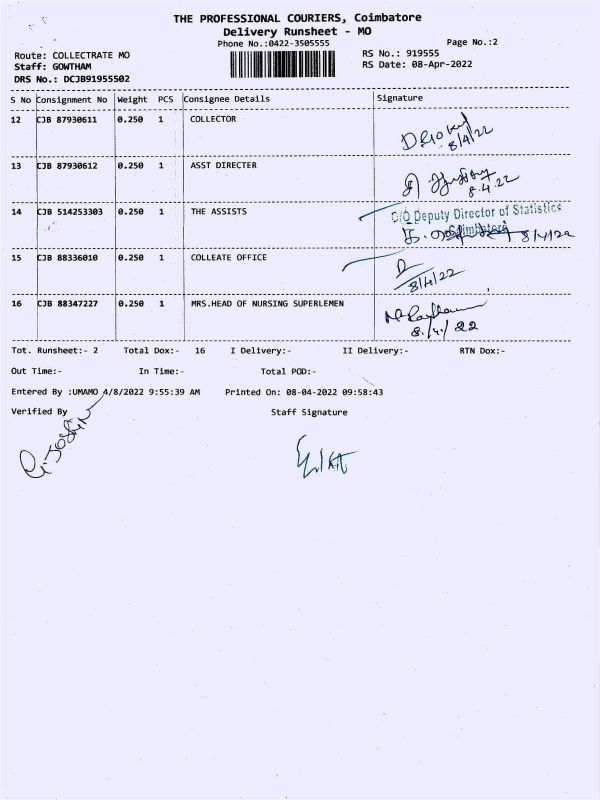 THE PROFESSIONAL COURIERS, Coimbatore
Delivery Runsheet - MO
Phone No.:0422-3505555
Page No.:2
Route: COLLECTRATE MO
RS No.: 919555
Staff: GOWTHAM
RS Date: 08-Apr-2022
DRS No.: DCJB91955502
S No Consignment No Weight PCS Consignee Details Signature
12 CJB 87930611 0.250 1 COLLECTOR
8/4/22
13 CJB 87930612 0.250 1 ASST DIRECTER
8.4.22
14 CJB 514253303 0.250 1 THE ASSISTS
C/O Deputy Director of Statistics
Coimbatore
8/4/22
15 CJB 88336010 0.250 1 COLLEATE OFFICE
8/4/22
16 CJB 88347227 0.250 1 MRS.HEAD OF NURSING SUPERLEMEN
8/4/22
Tot. Runsheet:- 2 Total Dox:- 16 I Delivery:- II Delivery:- RTN Dox:-
Out Time:- In Time:- Total POD:-
Entered By :UMAMO 4/8/2022 9:55:39 AM Printed On: 08-04-2022 09:58:43
Verified By Staff Signature